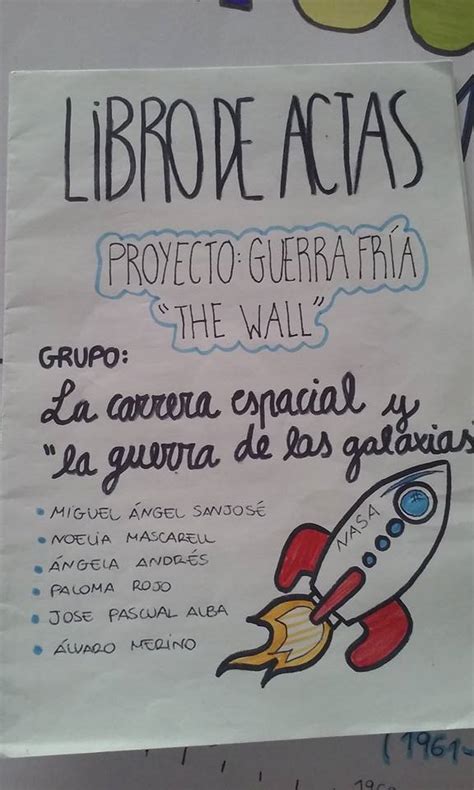 LIBRO DE ACTAS
PROYECTO: GUERRA FRÍA
"THE WALL"
GRUPO:
La carrera espacial y
"la guerra de las galaxias"
• MIGUEL ÁNGEL SANJOSÉ
• NOELIA MASCARELL
• ÁNGELA ANDRÉS
• PALOMA ROJO
• JOSE PASCUAL ALBA
• ÁLVARO MERINO
NASA
(1961-